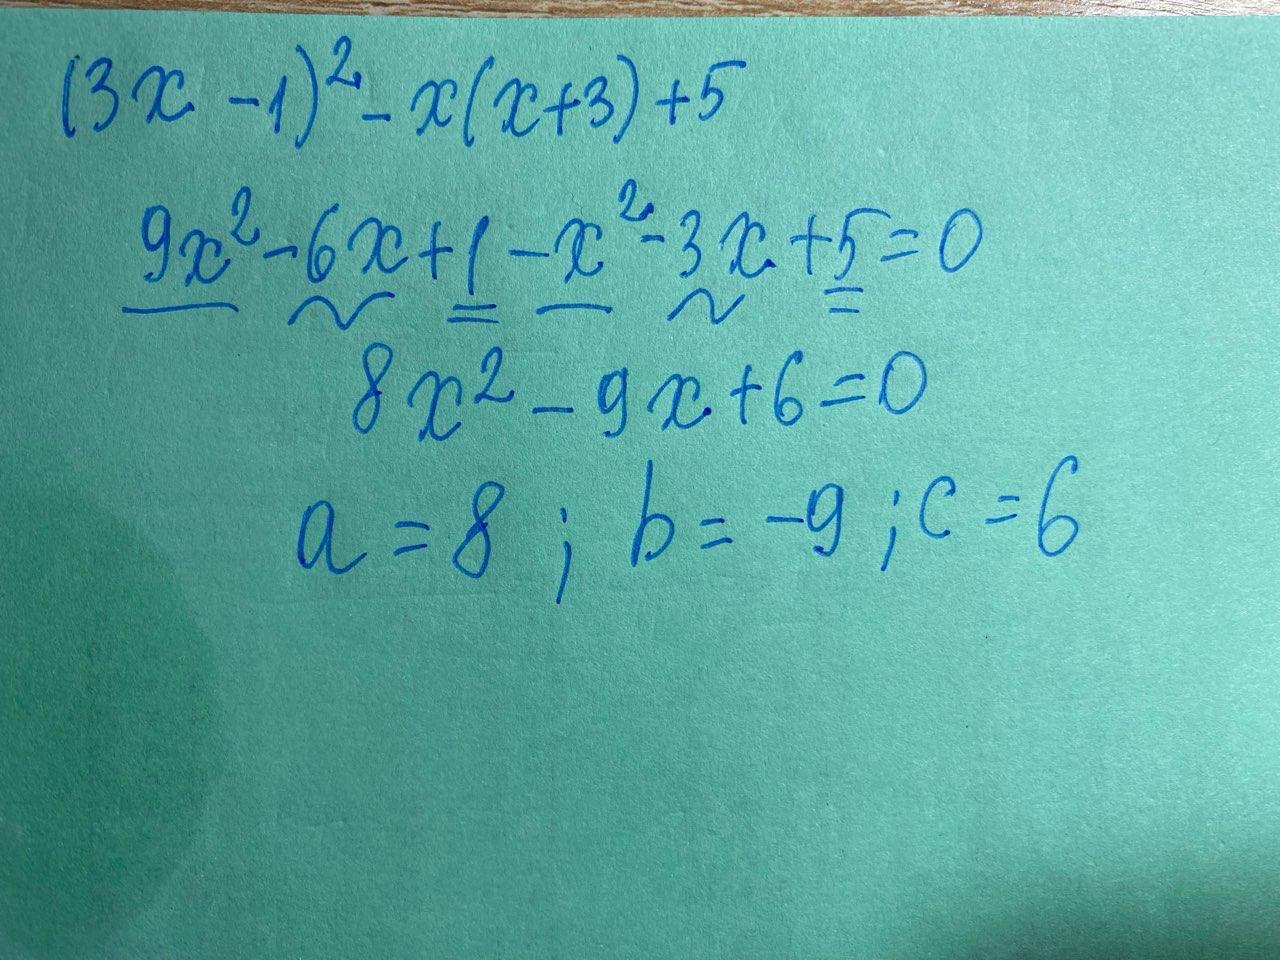 (3x - 1)² - x(x+3) +5
9x² - 6x + 1 - x² - 3x + 5 = 0
8x² - 9x + 6 = 0
a = 8 ; b = -9 ; c = 6